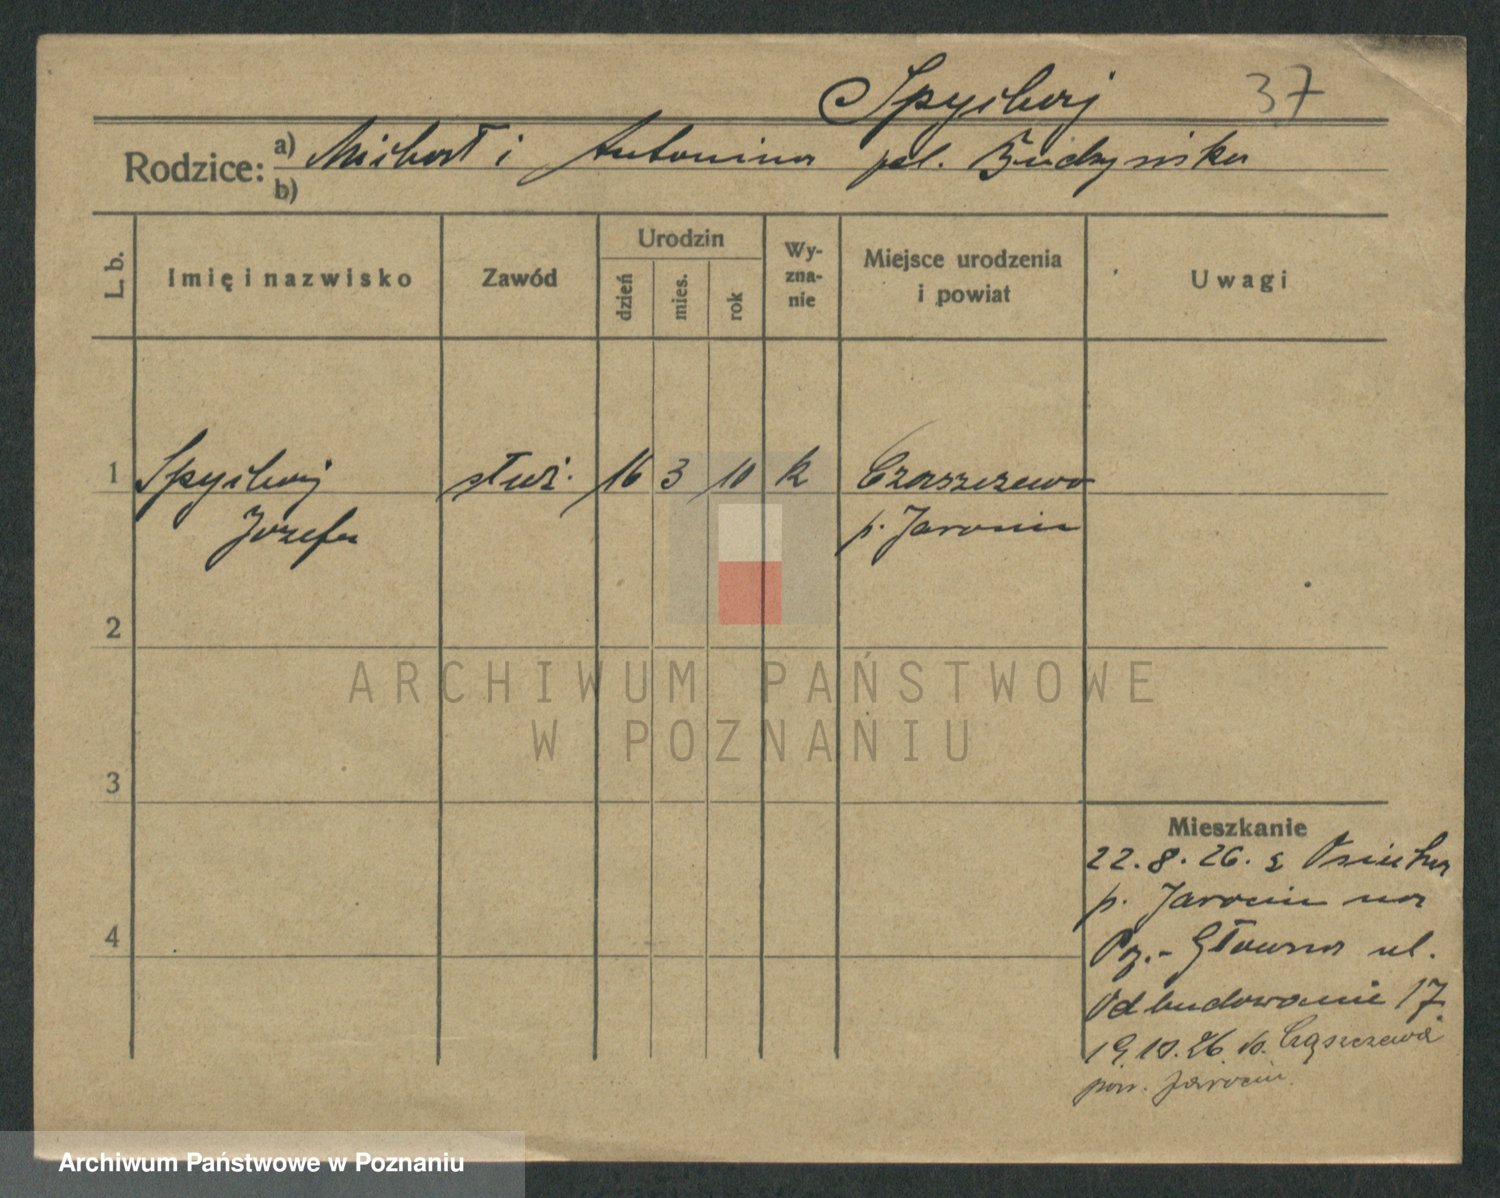 Spychaj 37
Rodzice: a) Michał i Antonina zd. Budzyńska
b)
L. b. Imię i nazwisko Zawód Urodzin dzień mies. rok Wy-zna-nie Miejsce urodzenia i powiat Uwagi
1 Spychaj służ. 16 3 10 k Czaszczewo
Józefa p. Jarocin
2
ARCHIWUM PAŃSTWOWE
W POZNANIU
3
Mieszkanie
22.8.26. z Osieka
p. Jarocin na
4
Poz.- Główna ul.
Odbudowanie 17
19.10.26 do Cząszczewa
pow. Jarocin
Archiwum Państwowe w Poznaniu